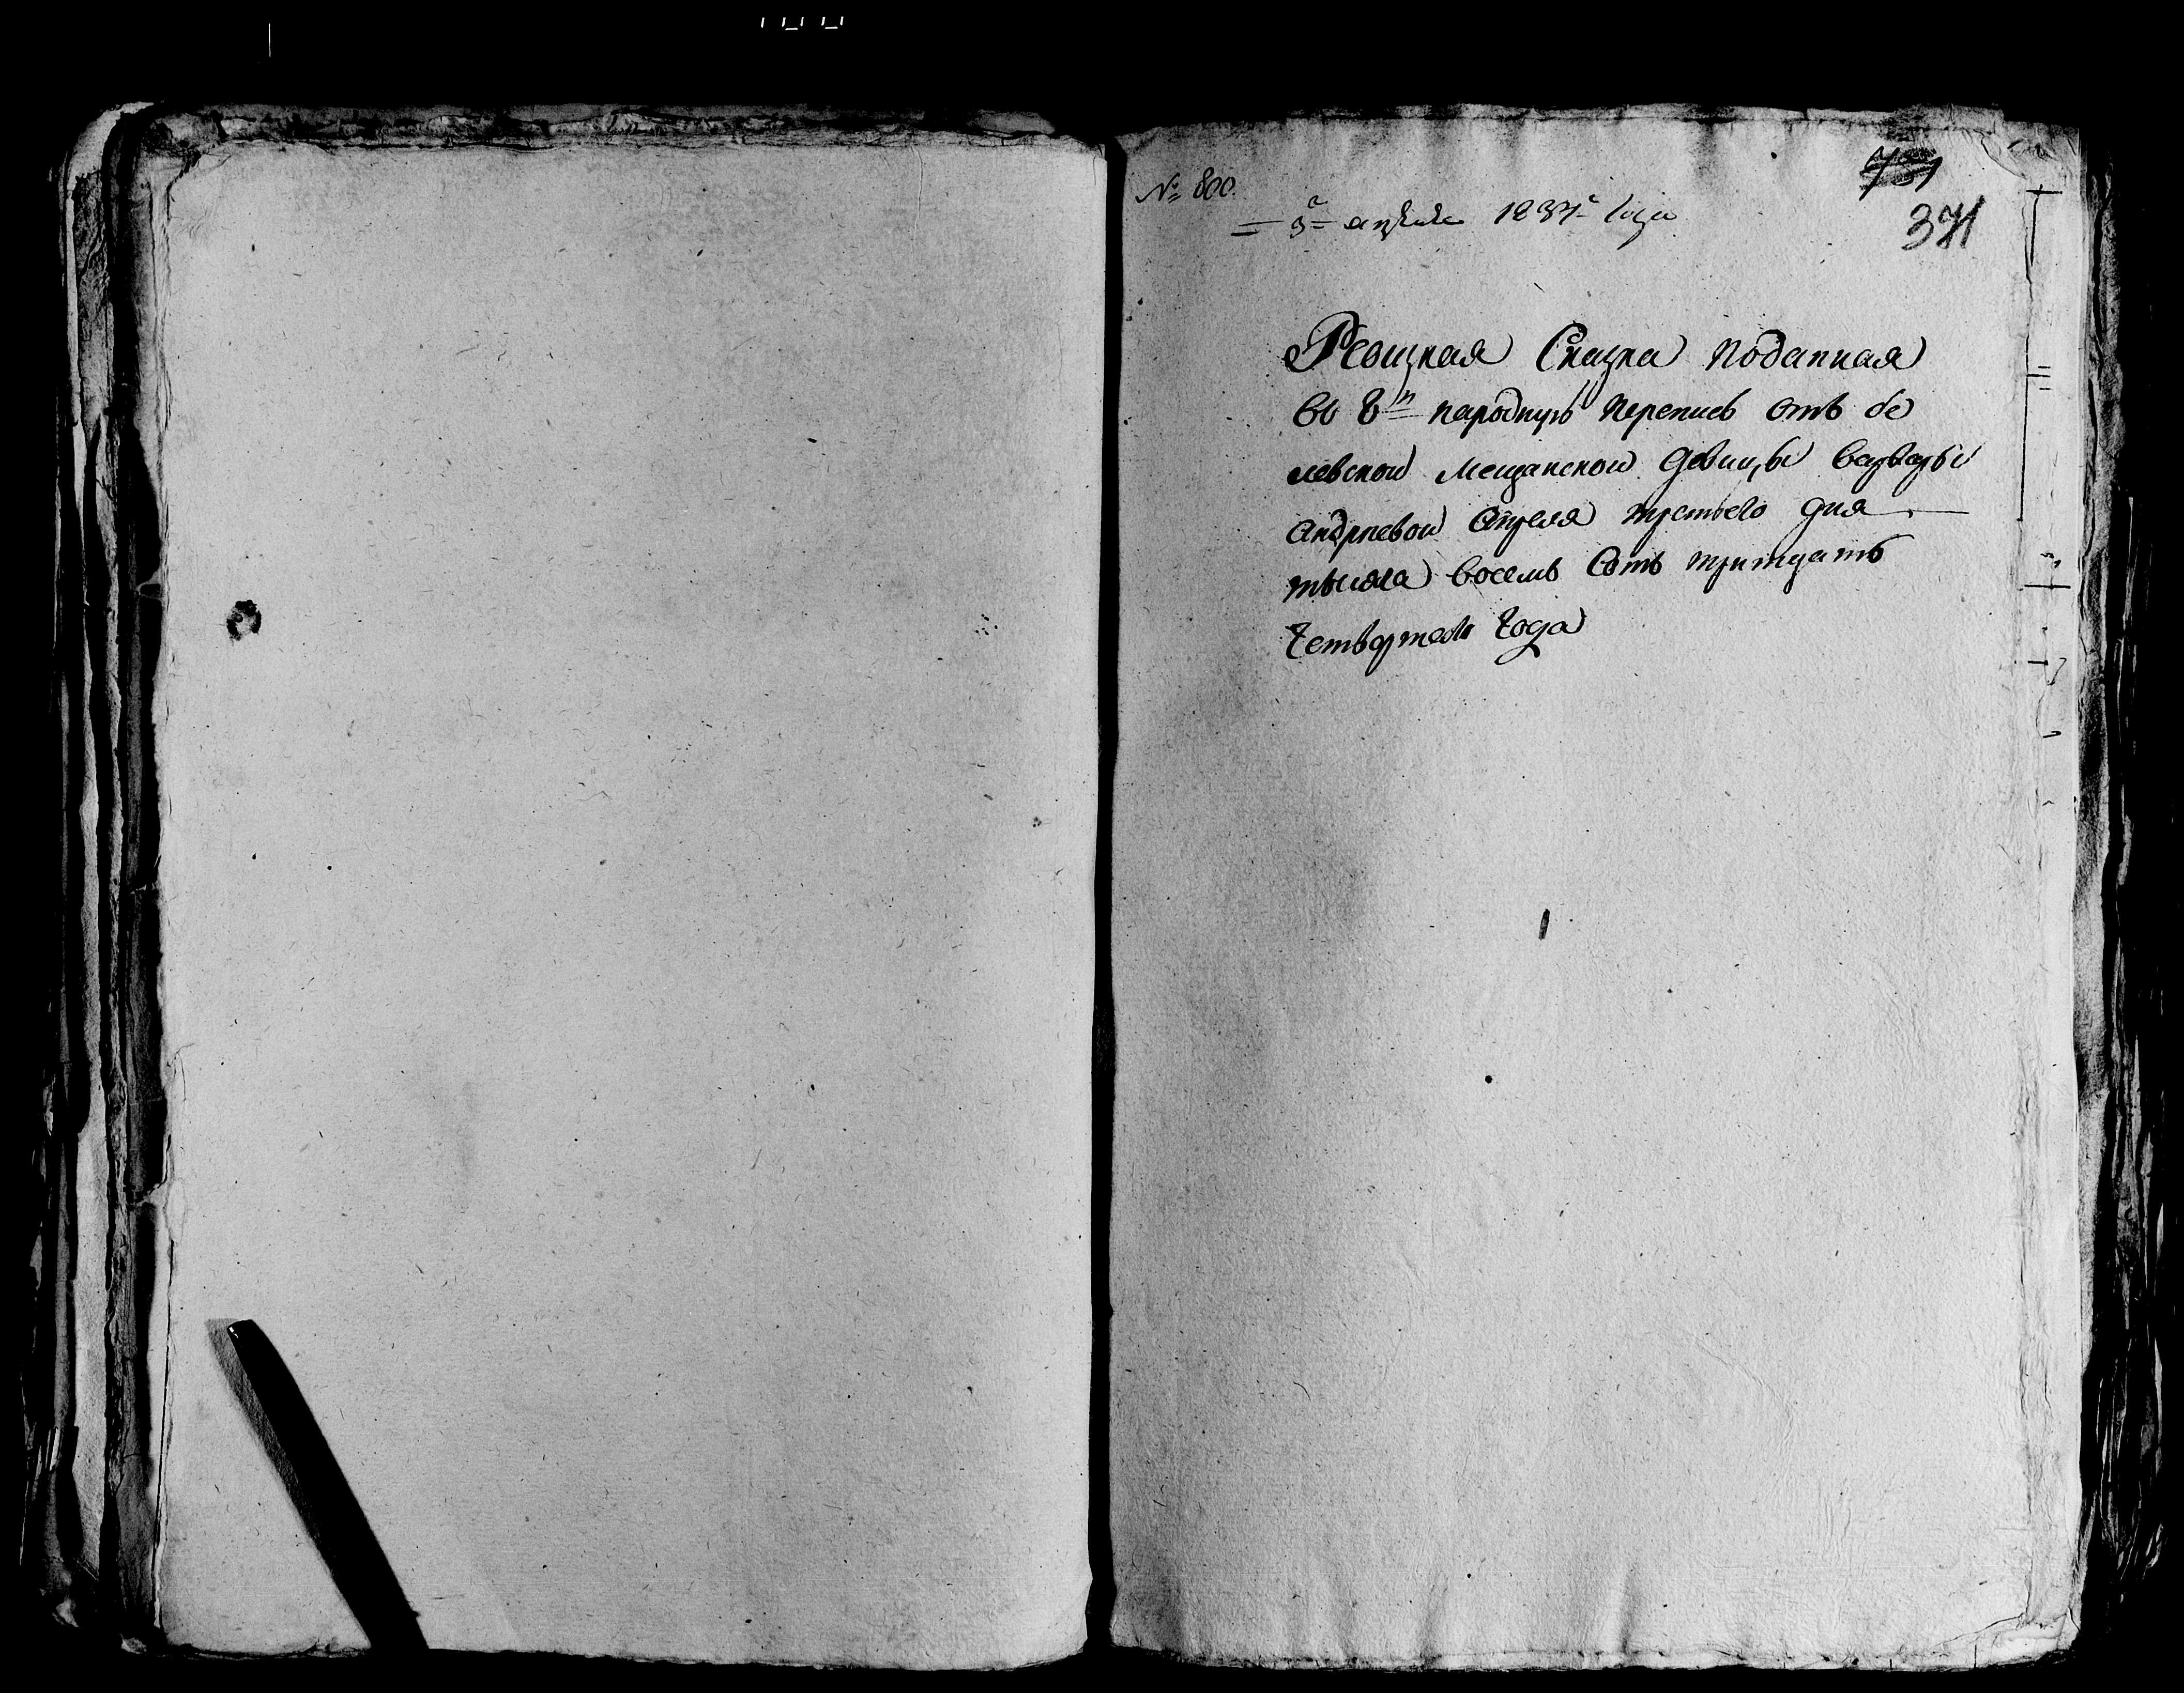 № 800.
3го апреля 1834го года
731
371
Ревизкая Сказка поданная
въ 8ю народную перепись отъ бе
левской мещанской девицы варвары
андреевой апреля третьего дня
тысяча восемь сотъ тритцать
четвертаго года